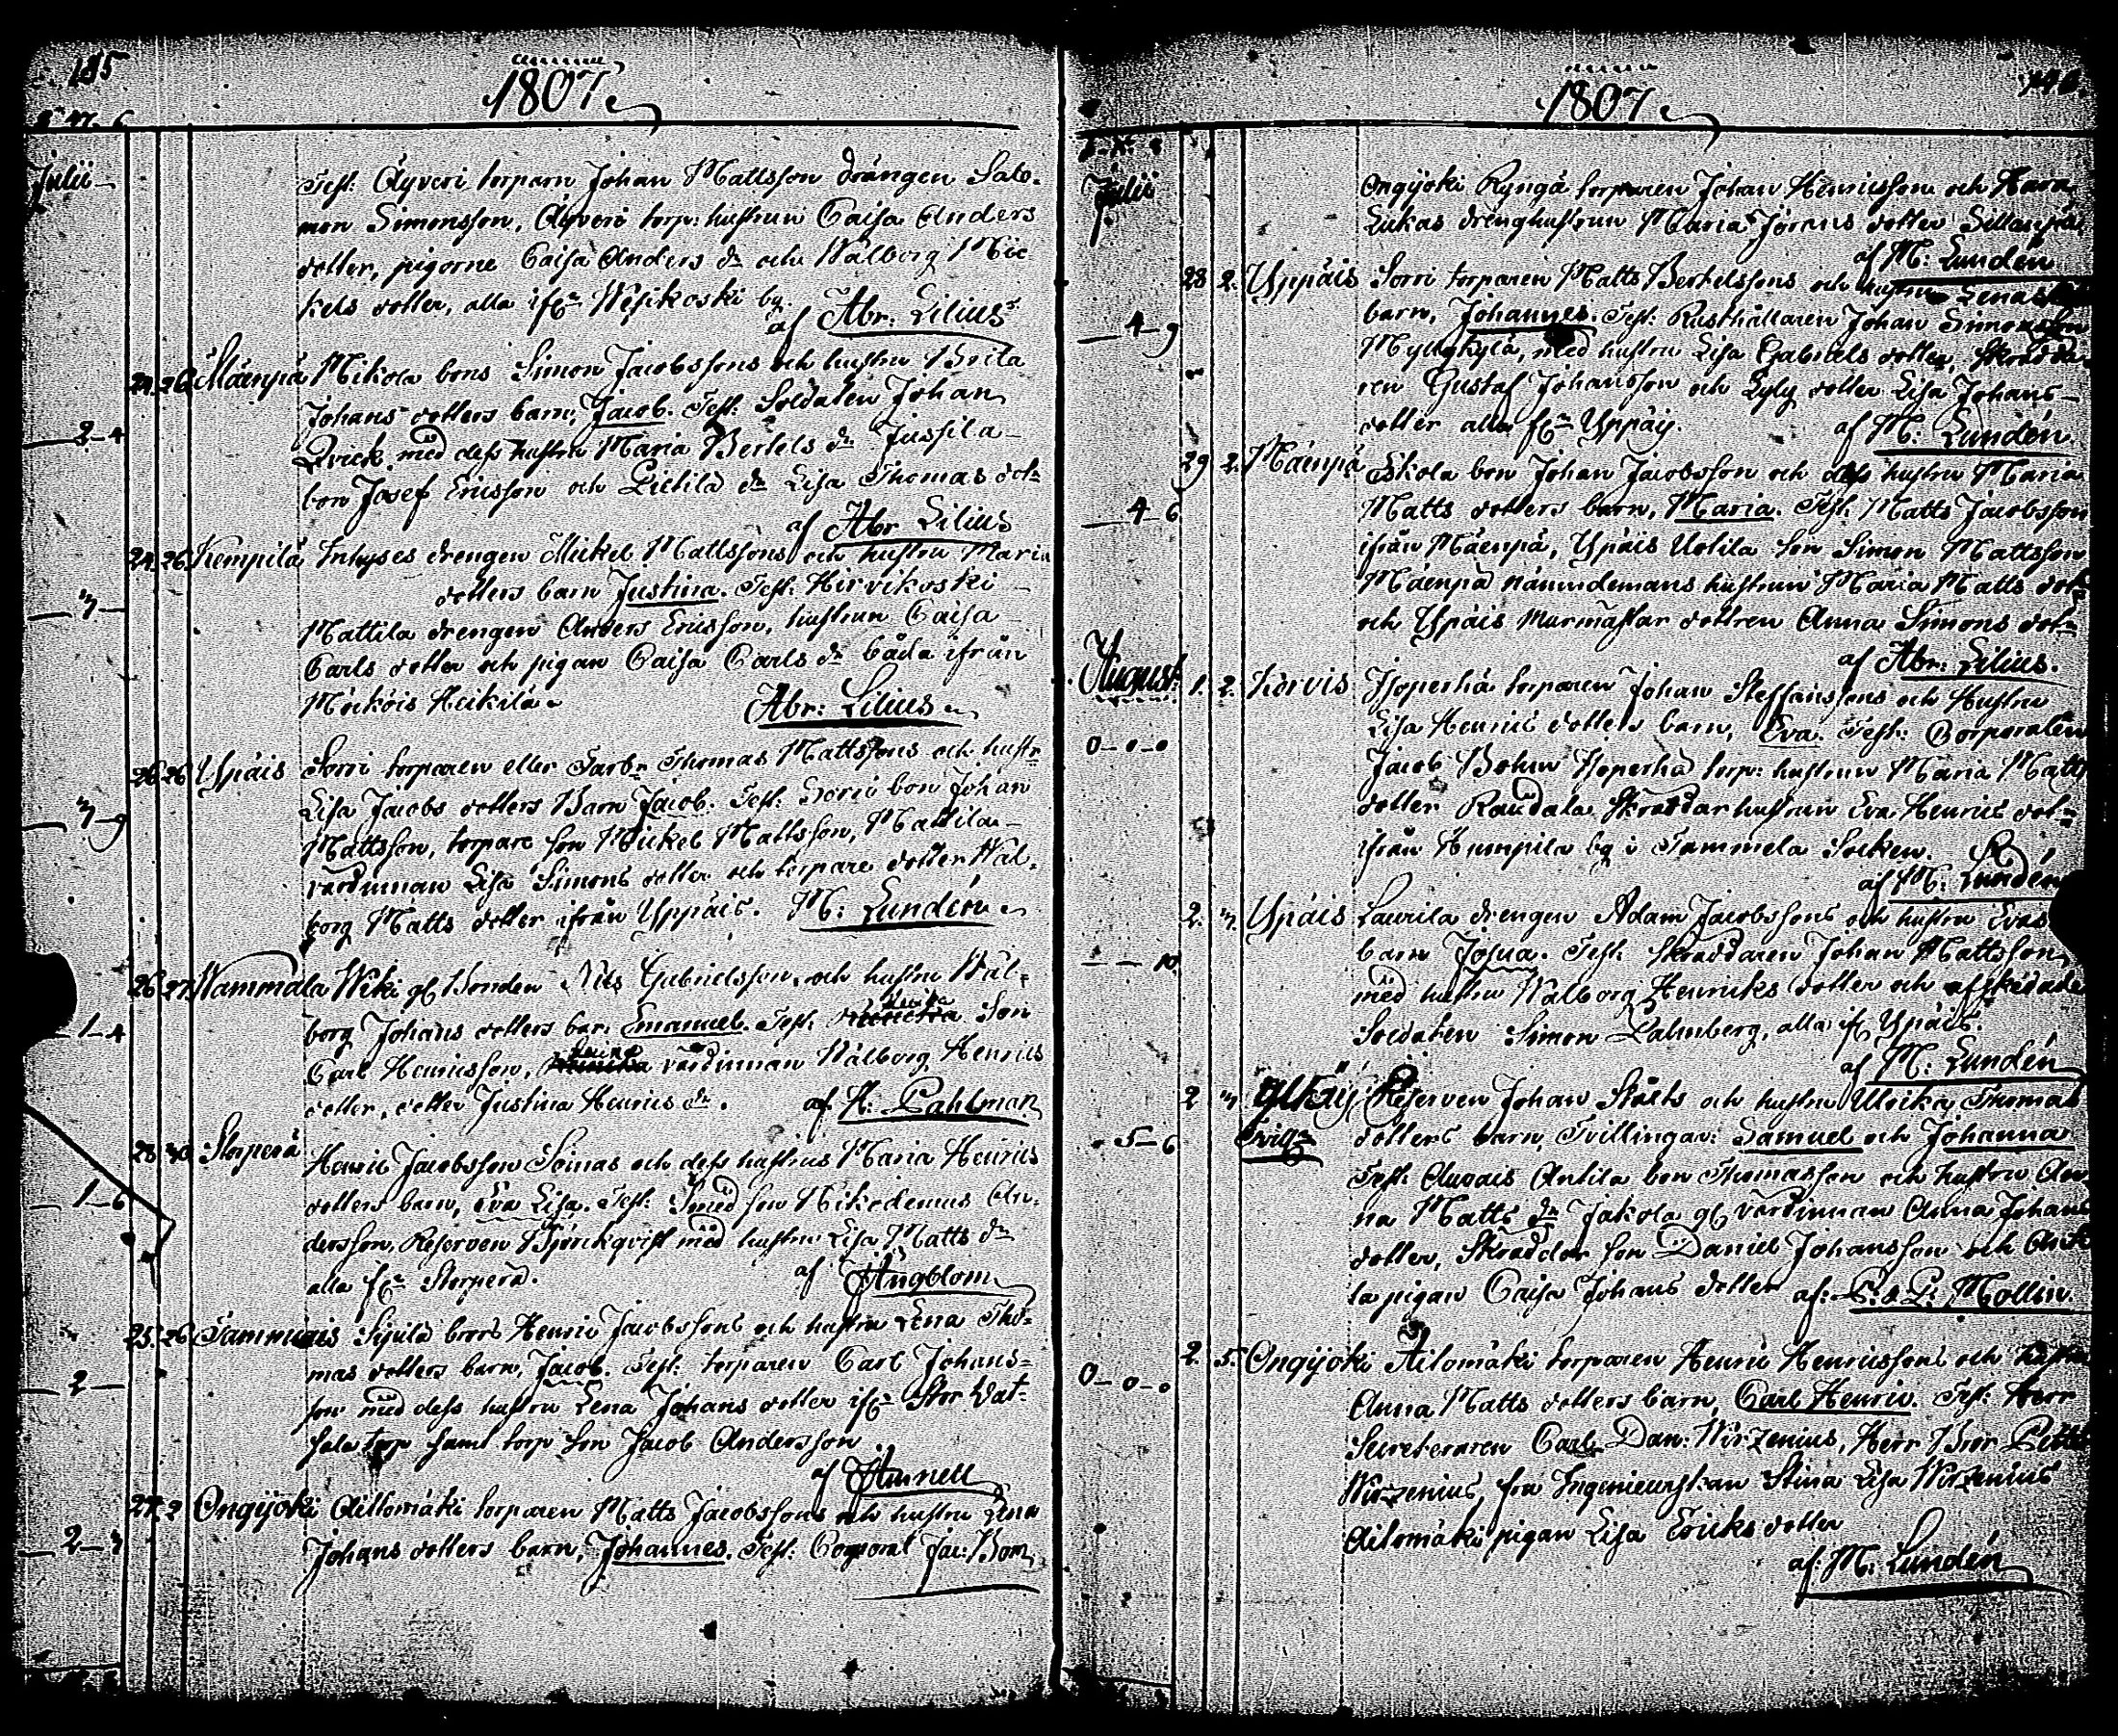 185
1807
Julii
Test: Äyveri torparn Johan Mattsson drängen Salo-
mon Simonsson, Äyveri torp: hustrun Caisa Anders
dotter, pigorne Caisa Anders dr och Walborg Mic
kels dotter, alla ifrn Wesikoski by.
af Abr: Lilius
24. 26. Mäenpä Mikola bons Simon Jacobssons och hustru Brita
Johans dotters barn, Jacob. Test: Soldaten Johan
2-4
Qvick med dess hustru Maria Bertels dr Jussila
bon Josef Ericsson och Pietilä dr Lisa Thomas dotr
af Abr Lilius
24. 26. Kempilä Inhyses drengen Mickel Mattssons och hustru Maria
dotters barn Justina. Test: Hirvikoski
Mattila drengen Anders Ericsson, hustrun Caisa
Carls dotter och pigan Caisa Carls dr båda ifrån
Mickois Heikilä
Abr: Lilius
26 26 Ypäis Sorri torparen eller Farbr Thomas Mattssons och hustr
Lisa Jacobs dotters Barn Jacob. Test: Sorri bon Johan
7-9
Mattsson, torpare son Mickel Mattsson, Mattila
värdinnan Lisa Simons dotter och torpare dotter Wal-
borg Matts dotter ifrån Yppäis. M: Lundén
26 27 Wammala Wiki gl Bonden Nils Gabrielsson, och hustru Wal-
borg Johans dotters bar: Emanuel. Test: Son
1-4
Carl Henricsson, värdinnan Walborg Henrics
dotter, dotter Justina Henrics dr. af H: Pahlman
28 30 Storperä Henric Jacobsson Soinas och dess hustrus Maria Henrics
dotters barn, Eva Lisa. Test: Smed son Nikodemus An-
1-6
dersson, Reserven Björkqvist med hustru Lisa Matts dr
alla frn Storperä. af Ångblom
25. 26 Tammiais Sipilä brors Henric Jacobssons och hustru Lena Tho-
mas dotters barn, Jacob. Test: torparen Carl Johans-
2-
son med dess hustru Lena Johans dotter ifrn Stor
torp samt torp son Jacob Andersson
af
27. 2 Ongijoki Ailomäki torparen Matts Jacobssons och hustru Lena
2-7
Johans dotters barn, Johannes. Test: Corporal Jac: Bom
1807
Julii
Ongijoki Ryngä torparen Johan Henricsson och Kara
Lukas drenghustrun Maria Jörans dotter Sillanpää
af M: Lundén
28 2. Yppäis Sorri torparen Matts Bertelssons och hustru Lenas
4-9
barn, Johannes. Test: Rusthållaren Johan Simonsson
Myllykylä, med hustru Lisa Gabriels dotter, Skrädda-
ren Gustaf Johansson och Lyly dotter Lisa Johans
dotter alla frn Yppäis. af M: Lundén
29 2. Mäenpä Eskola bon Johan Jacobsson och dess hustru Maria
4-6
Matts dotters barn, Maria. Test: Matts Jacobsson
ifrån Mäenpä, Ypäis Uotila son Simon Mattsson
Mäenpä nämndemans hustrun Maria Matts dotr
och Ypäis murmästar dottren Anna Simons dotr
af Abr: Lilius.
August 1. 2. Körvis Isoperhä torparen Johan Steffanssons och Hustru
Lisa Henrics dotters barn, Eva. Test: Corporalen
0-0-0
Jacob Bohm Isoperhä torp: hustrun Maria Matts
dotter Raudala Skraddar hustrun Eva Henrics dotr
ifrån Humpila by i Tammela Socken.
af M: Lundén
2. 7. Ypäis Laurila drengen Adam Jacobssons och hustru Evas
barn Josua. Test: Skraddaren Johan Mattsson,
10.
med hustru Walborg Henricks dotter och afskedade
Soldaten Simon Palmberg, alla ifrn Ypäis.
af M: Lundén
2 7 Reserven Johan Stålts och hustru Ulrika Thomas
5-6
Tvillr dotters barn, Tvillingar: Samuel och Johanna
Test: Auvais Antila bon Thomasson och hustru An-
na Matts dr Jakola gl värdinnan Anna Johans
dotter, Skraddar son Daniel Johansson och Anti
la pigan Caisa Johans dotter af: Mollin.
2. 5. Ongijoki Ailomäki torparen Henric Henricssons och hustru
0-0-0
Anna Matts dotters barn, Carl Henric. Test: Herr
Secreteraren Carl Dan: Wirzenius, Herr Bror Petter
Wirzenius, fru Ingenieurskan Stina Lisa Wirzenius
Ailomäki pigan Lisa Ericks dotter
af M: Lundén